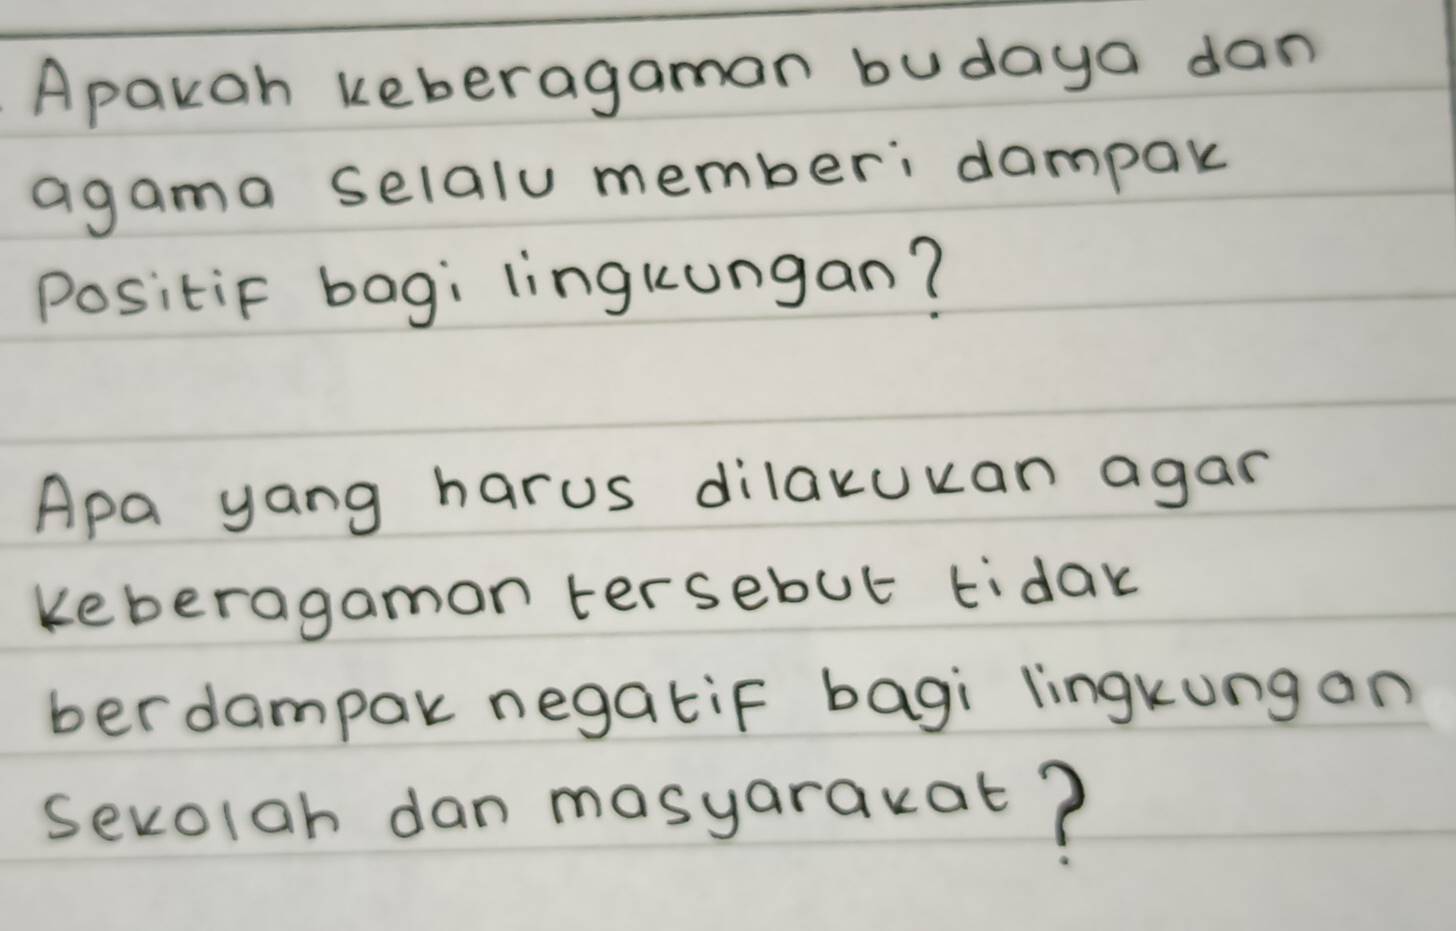 Apakah keberagaman budaya dan
agama selalu memberi dampak
Positif bagi lingkungan?
Apa yang harus dilakukan agar
keberagaman tersebut tidak
berdampak negatif bagi lingkungan
Sekolah dan masyarakat?